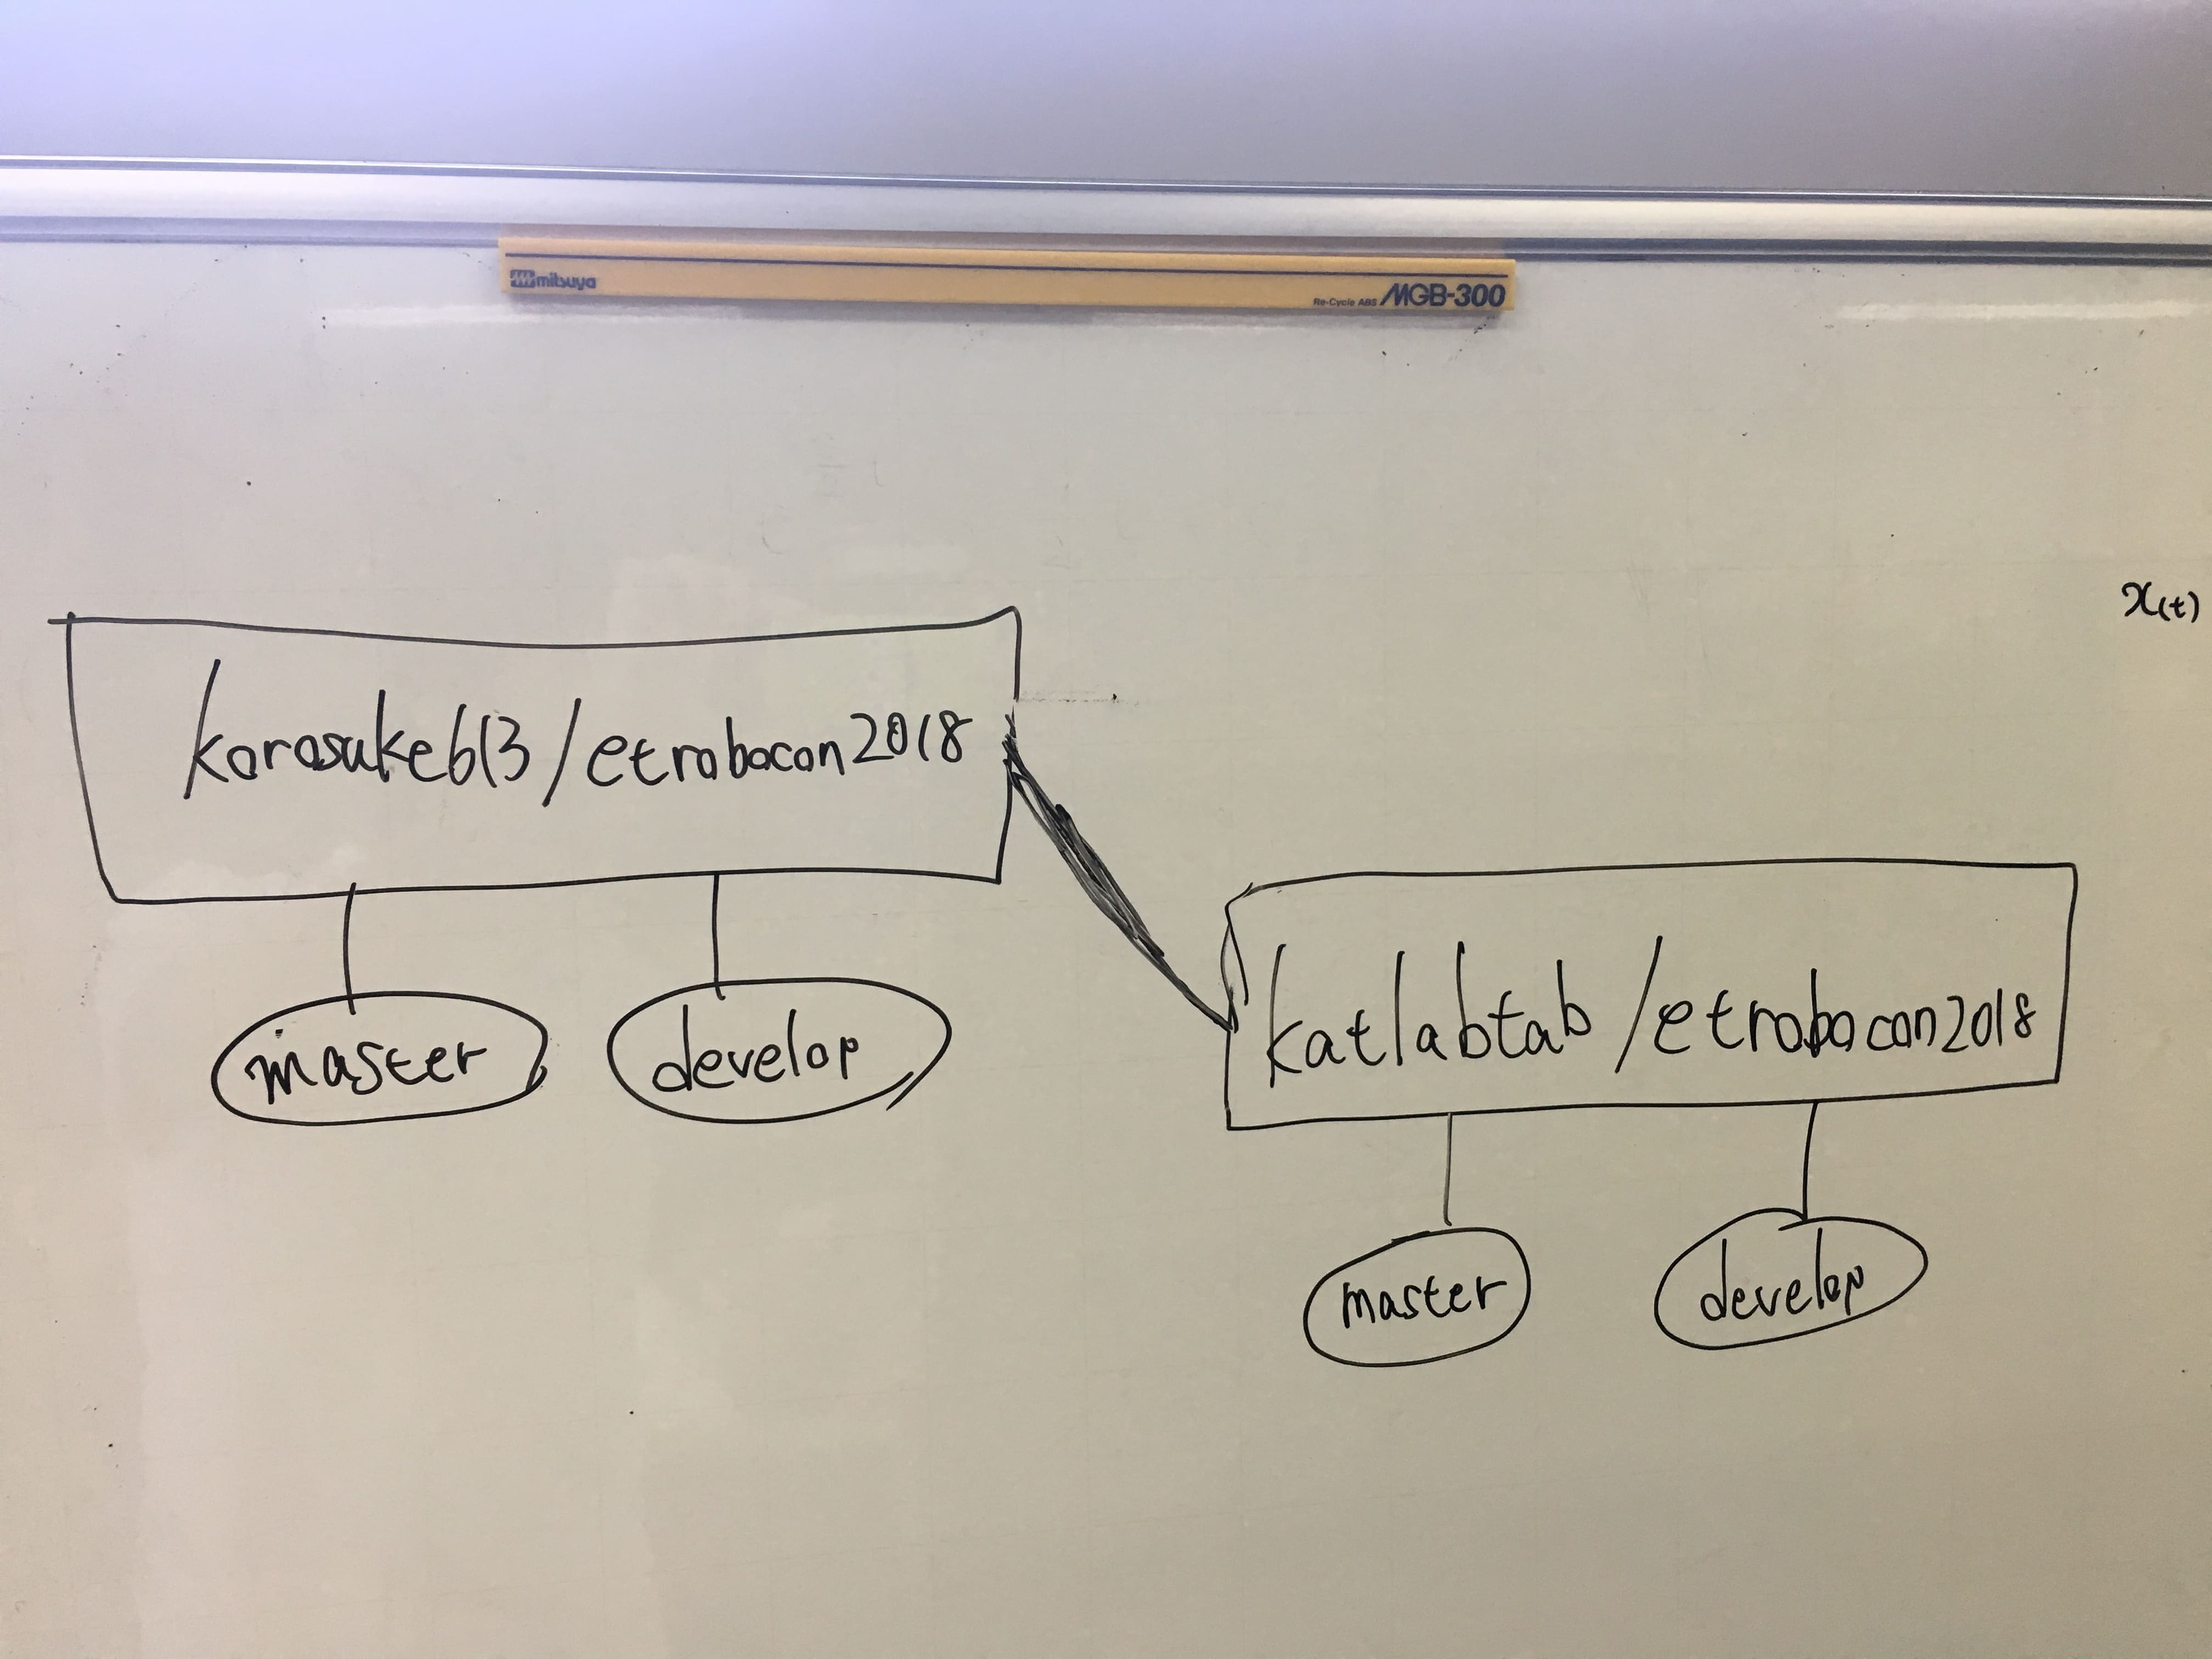 mitsuya
Re-Cycle ABS MGB-300
x(t)
korosuke613/etrobocon2018
master
develop
katlabtab/etrobocon2018
master
develop